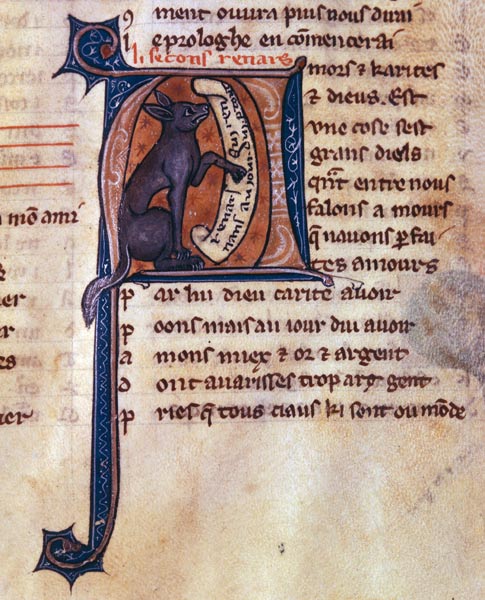 9 ment ouvra puis nous dirai
l e prologhe en cōmencerai
li secons renars
A mors & karites
& dieus. Est
une cose sest
grans diels
qñt entre nous
falons a mours
q̃ navons ꝑ fai
tes amours
p ar lui dieu carite avoir
p oons mais au iour dui avoir
a mons miex & or & argent
d ont avarisses trop argent
p ries q̃ tous ciaus ki sont ou mōde
mō ami